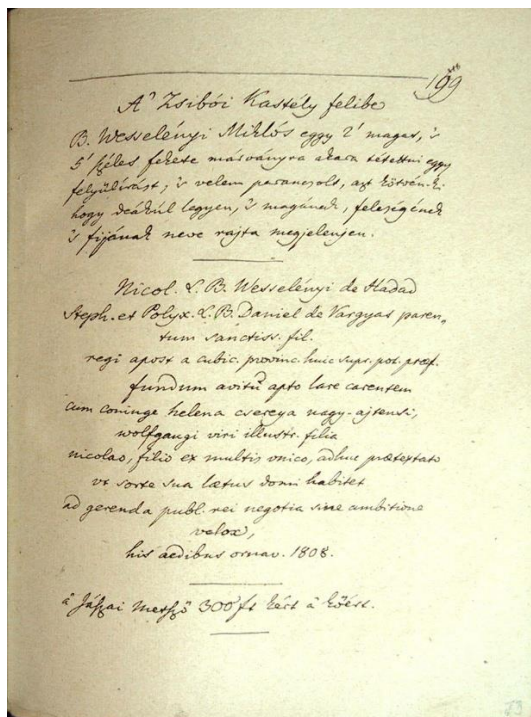 199
A' Zsibói Kastély felibe
B. Wesselényi Miklós eggy 2' magas, 's
5' széles fekete márványra akara tétettni eggy
felyűlírást, 's velem parancsolt, azt kötvén ki
hogy deákúl legyen, 's magának, feleségének
's fijának neve rajta megjelenjen.
Nicol. L. B. Wesselényi de Hadad
Steph. et Polyx. L. B. Daniel de Vargyas paren„
tum sanctiss. fil.
regi apost a cubic. provinc. huic supr. pot. præf.
fundum avitū apto lare carentem
cum coniuge helena csereya nagy-ajtensi,
wolfgangi viri illustr. filia
nicolao, filio ex multis vnico, adhuc prætextato
vt sorte sua lætus domi habitet
ad gerenda publ. rei negotia sine ambitione
velox,
his aedibus ornav. 1808.
a' Jászai metsző 300 ft kért a' kőért.
73